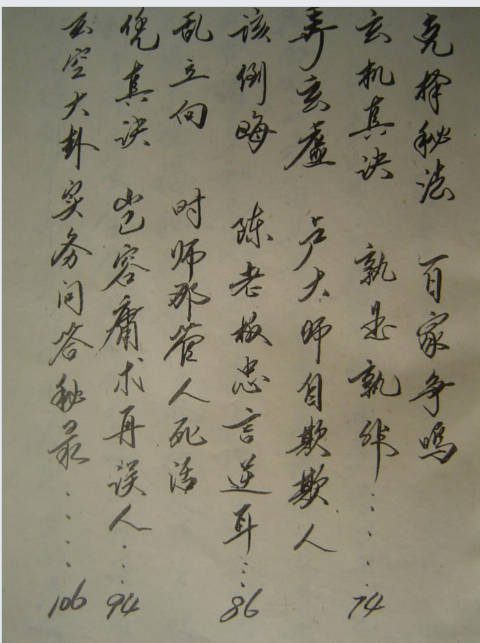 克择秘法 百家争鸣
玄机真诀 孰是孰非......74
弄玄虚 卢大师自欺欺人
该倒晦 陈老板忠言逆耳...86
乱立向 时师那管人死活
凭真诀 岂容庸术再误人...94
玄空大卦实务问答秘录....106